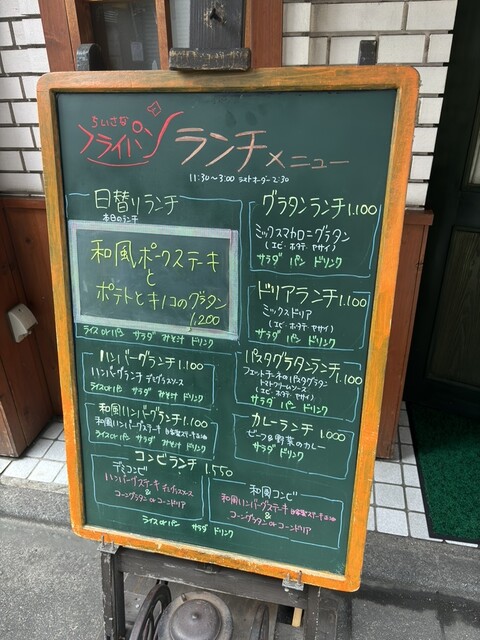 ちいさな
フライパン
ランチメニュー
11:30〜3:00 ラストオーダー2:30
日替りランチ
本日のランチ
和風ポークステーキ
と
ポテトとキノコのグラタン
1,200
ライスorパン サラダ みそ汁 ドリンク
ハンバーグランチ 1.100
ハンバーグランチ デミグラスソース
ライスorパン サラダ みそ汁 ドリンク
和風ハンバーグランチ 1.100
和風ハンバーグステーキ
ライスorパン サラダ みそ汁 ドリンク
グラタンランチ 1.100
ミックスマカロニグラタン
(エビ・ホタテ・ヤサイ)
サラダ パン ドリンク
ドリアランチ 1.100
ミックスドリア
(エビ・ホタテ・ヤサイ)
サラダ パン ドリンク
パスタグラタンランチ 1.100
トマトクリームソース
(エビ・ホタテ・ヤサイ)
サラダ パン ドリンク
カレーランチ 1.000
ビーフ&野菜のカレー
サラダ ドリンク
コンビランチ 1.550
デミコンビ
ハンバーグステーキ デミグラスソース
&
コーングラタン or コーンドリア
和風コンビ
和風ハンバーグステーキ
&
コーングラタン or コーンドリア
ライスorパン サラダ ドリンク